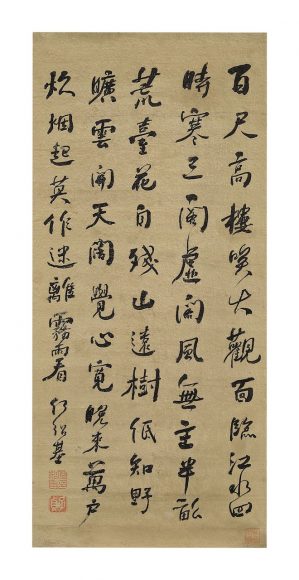 百尺高樓嘆大觀面臨江水四
時寒三閣虛開風無主半畝
荒臺花自殘山遠樹低知野
曠雲開天闊覺心寬晚來萬戶
炊烟起莫作迷離霧雨看 何紹基